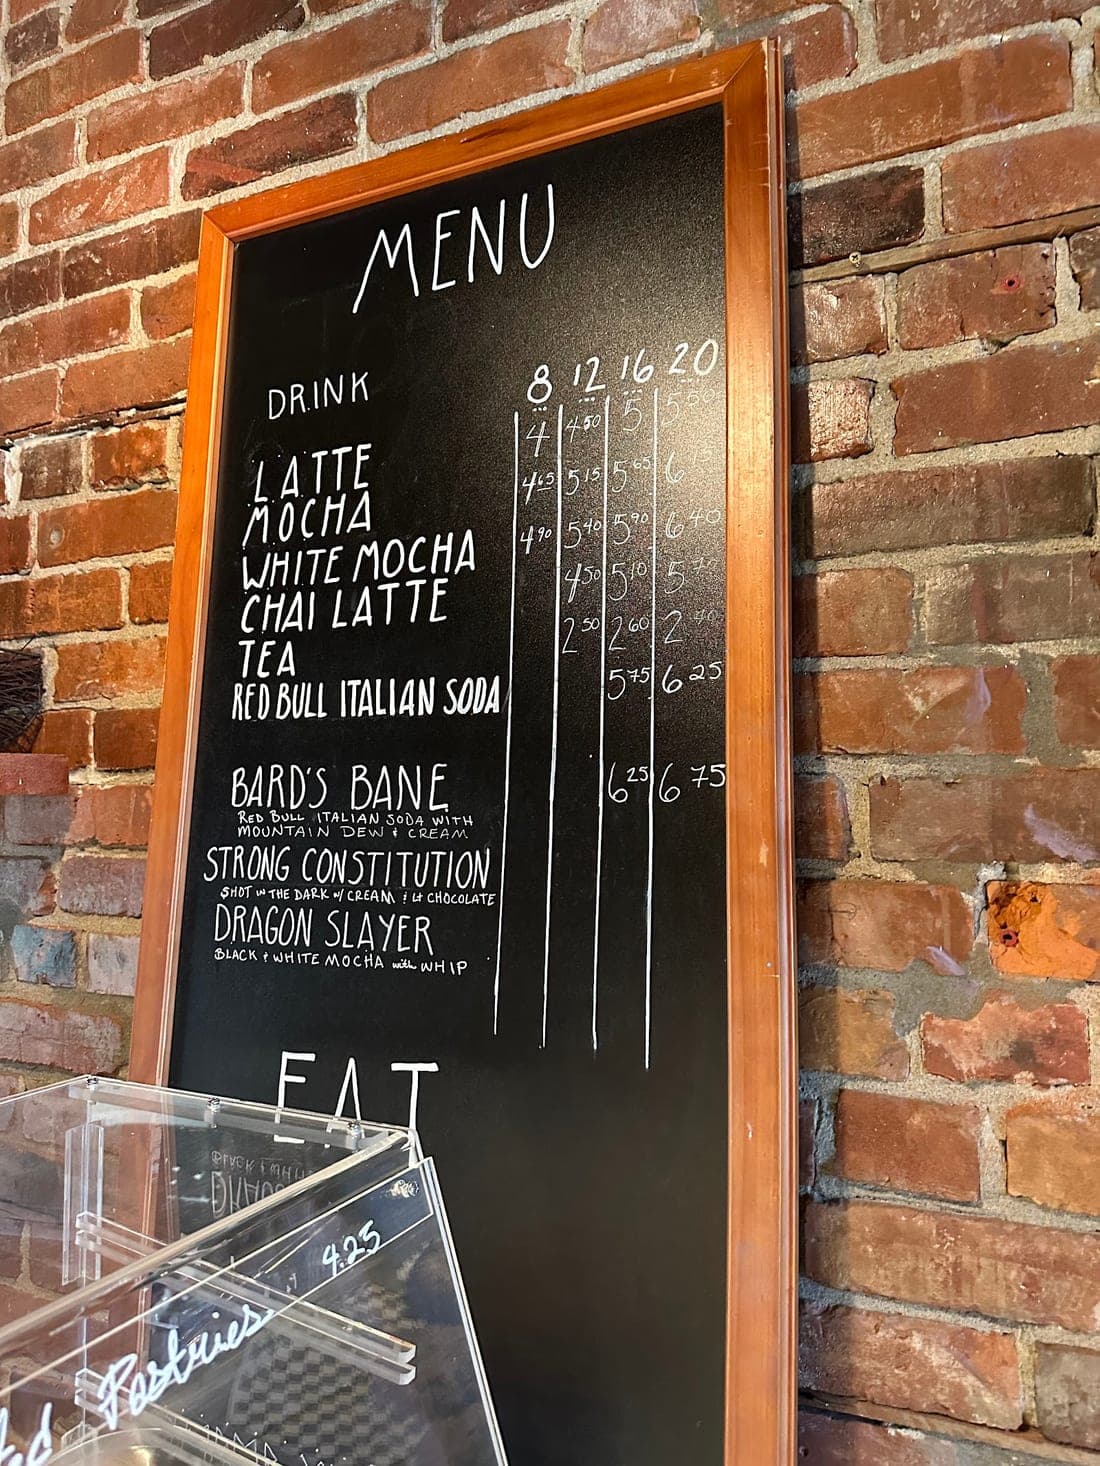 MENU
DRINK 8 12 16 20
LATTE 4 4 50 5 5 50
MOCHA 4 65 5 15 5 65 6
WHITE MOCHA 4 90 5 40 5 90 6 40
CHAI LATTE 4 50 5 10 5
TEA 2 50 2 60 2
RED BULL ITALIAN SODA 5 75 6 25
BARD'S BANE 6 25 6 75
RED BULL ITALIAN SODA WITH
MOUNTAIN DEW & CREAM
STRONG CONSTITUTION
SHOT IN THE DARK W/ CREAM & Lt CHOCOLATE
DRAGON SLAYER
BLACK & WHITE MOCHA with WHIP
EAT
4.25
Pastries